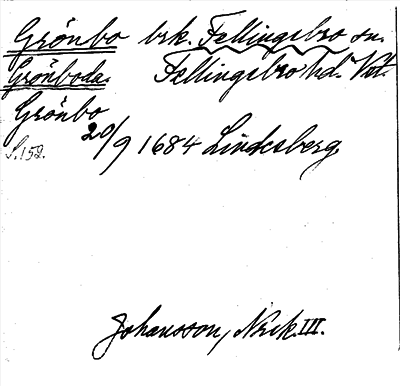 Grönbo brk. Fellingsbro sn.
Grönboda. Fellingsbro hd. Vstm.
Grönbo
20/9 1684 Lindesberg
S. 152.
Johansson, Noraskog III.